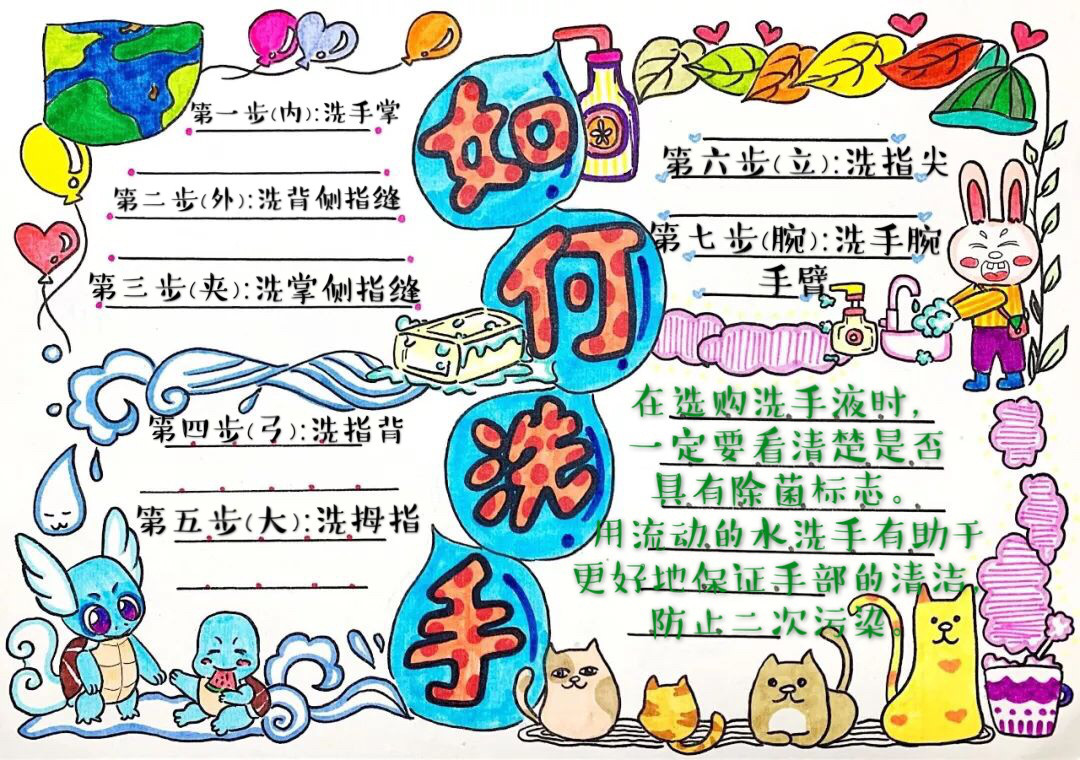 如何洗手
第一步(内):洗手掌
第二步(外):洗背侧指缝
第三步(夹):洗掌侧指缝
第四步(弓):洗指背
第五步(大):洗拇指
第六步(立):洗指尖
第七步(腕):洗手腕
手臂
在选购洗手液时,
一定要看清楚是否
具有除菌标志。
用流动的水洗手有助于
更好地保证手部的清洁,
防止二次污染。